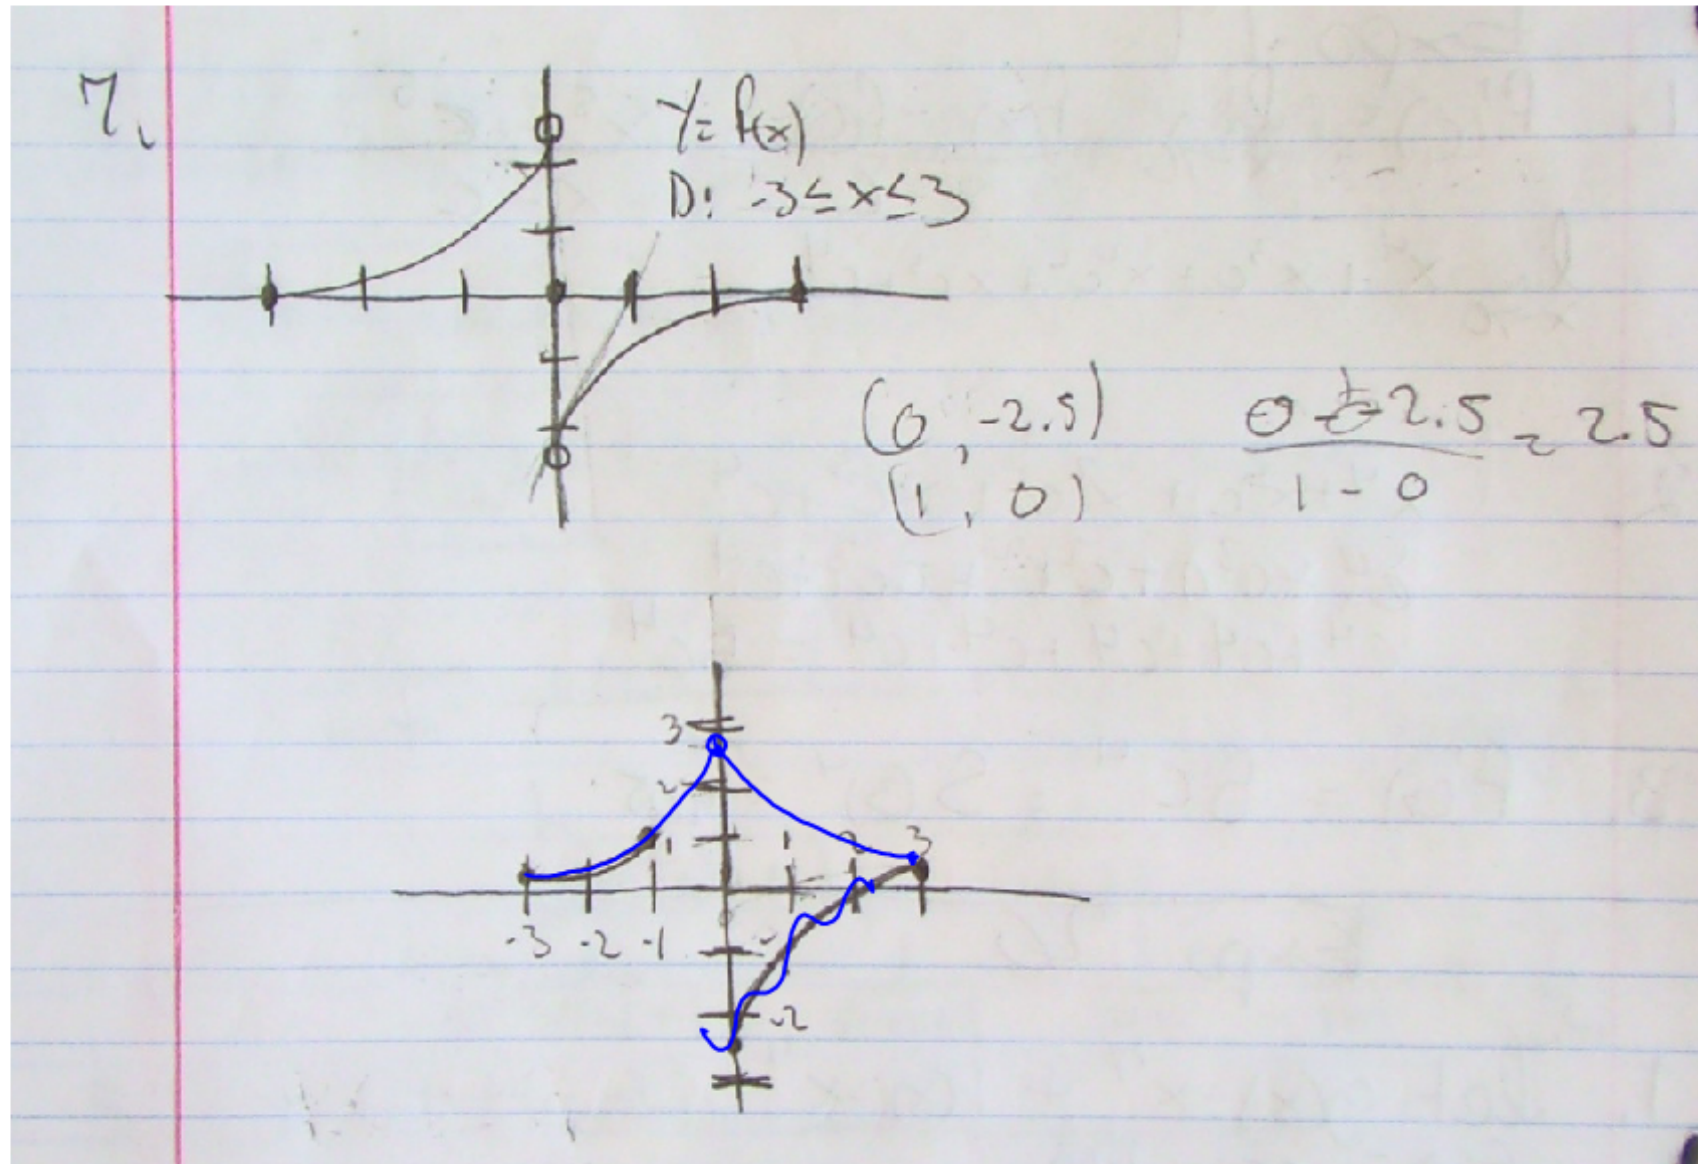 7.
Y = f(x)
D: -3 ≤ x ≤ 3
(0, -2.5)
(1, 0)
0 - -2.5 = 2.5
1 - 0
3
2
1
1 2 3
-3 -2 -1
-2